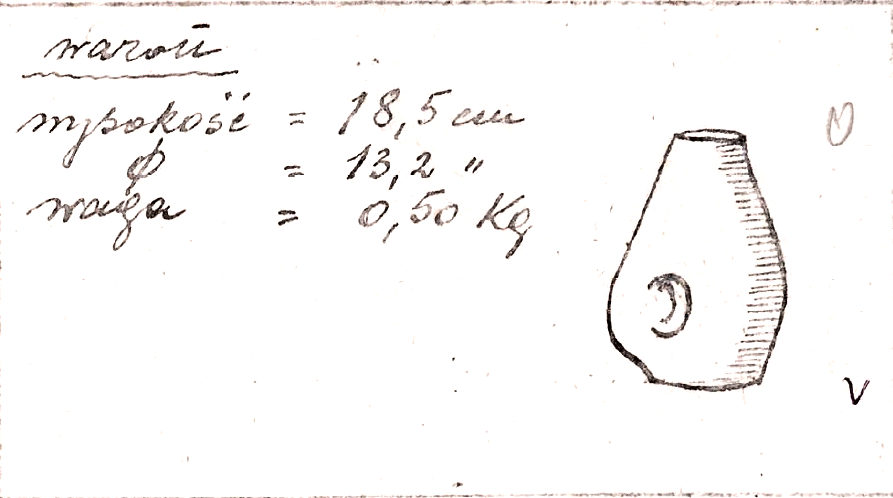 wazon
wysokość = 18,5 cm
ϕ = 13,2 "
waga = 0,50 Kg
V